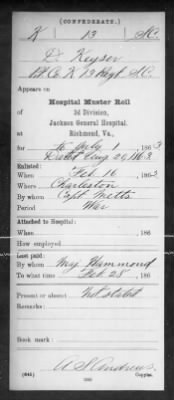 (CONFEDERATE.)
K | 13 | S.C.
D. Keyser
Pvt. Co. K 13 Regt S.C.
Appears on
Hospital Muster Roll
2d Division,
Jackson General Hospital,
Richmond, Va.,
for to July 1 186 3
dated Aug 20, 186 3.
Enlisted:
When Feb 16, 186 3
Where Charleston
By whom Capt Metts
Period War
Attached to Hospital:
When , 186
How employed
Last paid:
By whom Maj Hammond
To what time Feb 28, 186
Present or absent Not stated
Remarks:
Book mark:
A S Andrews
(641) Copyist.